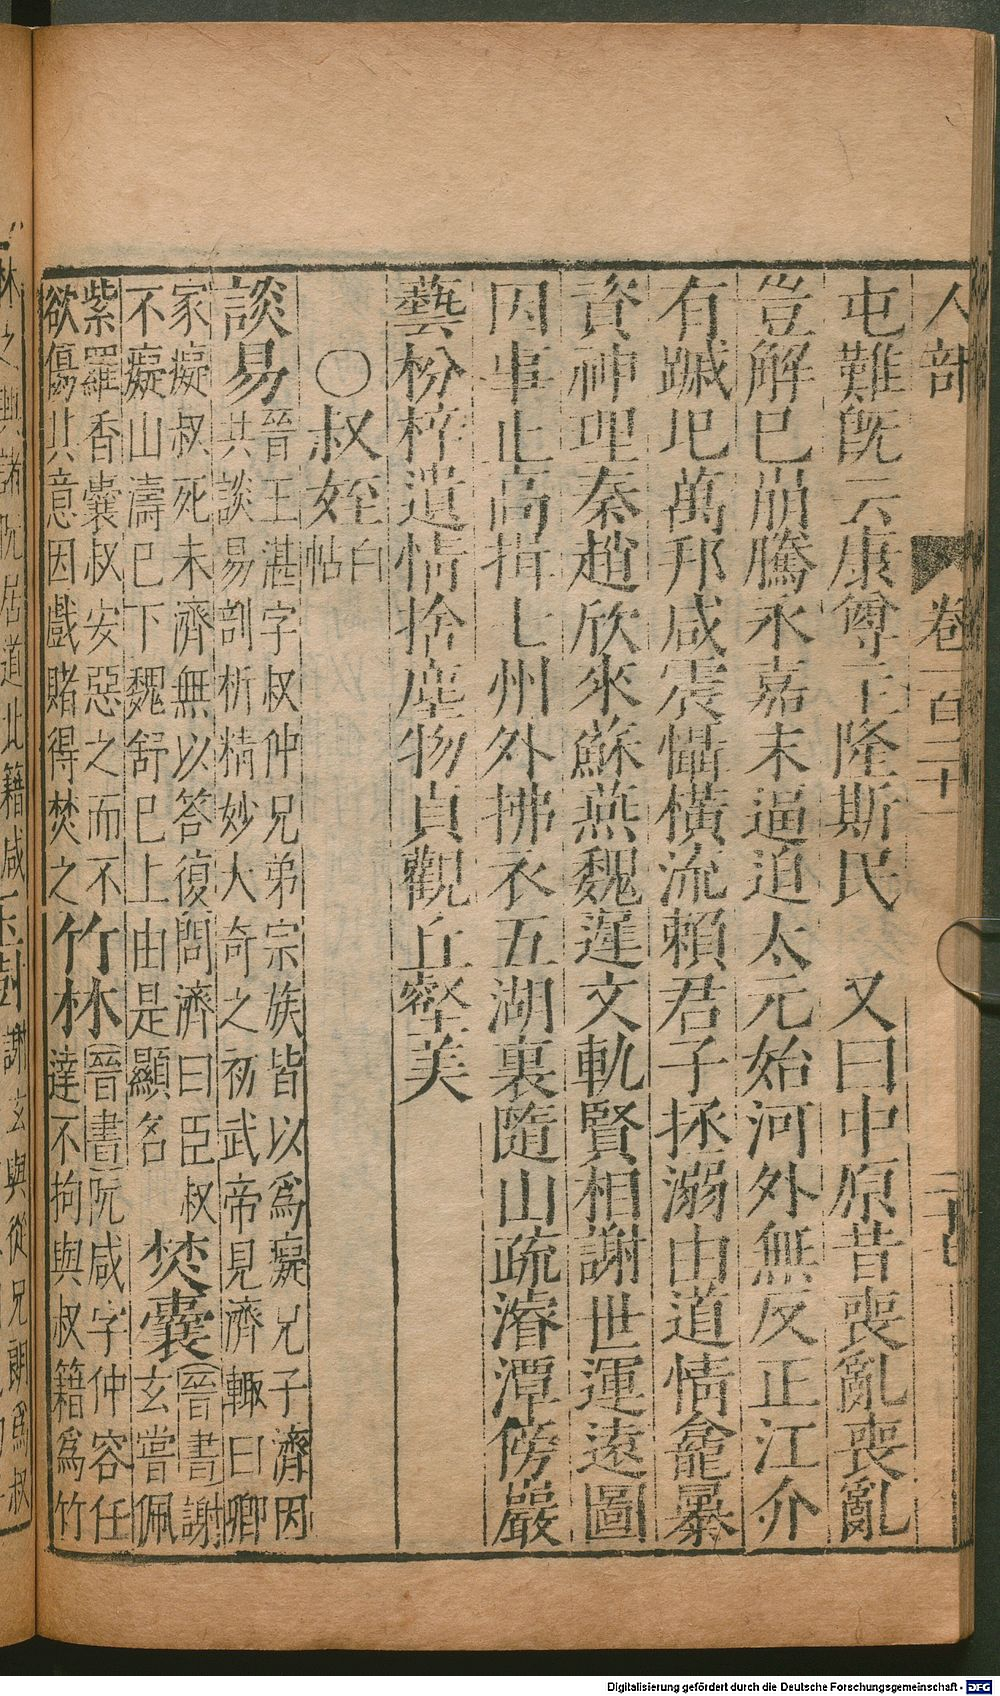 人部 卷一百二十
屯難既云康尊主隆斯民 又曰中原昔喪亂喪亂
豈解已崩騰永嘉末逼迫太元始河外無反正江介
有蹴圯萬邦咸震懾橫流賴君子拯溺由道情龕暴
資神理秦趙欣來蘇燕魏遲文軌賢相謝世運遠圖
因事止高揖七州外拂衣五湖裏隨山疏濬潭傍巖
藝枌梓遺情捨塵物貞觀丘壑美
○叔姪 白帖
談易 晉王湛字叔仲兄弟宗族皆以爲癡兄子濟因
共談易剖析精妙大奇之初武帝見濟輒曰卿
家癡叔死未濟無以答復問濟曰臣叔
不癡山濤已下魏舒已上由是顯名 焚囊 晉書謝
玄嘗佩
紫羅香囊叔安惡之而不
欲傷其意因戲賭得焚之 竹林 晉書阮咸字仲容任
達不拘與叔籍爲竹
林之與諸阮居道北籍咸 玉樹 謝玄與從兄朗爲叔
Digitalisierung gefördert durch die Deutsche Forschungsgemeinschaft - DFG